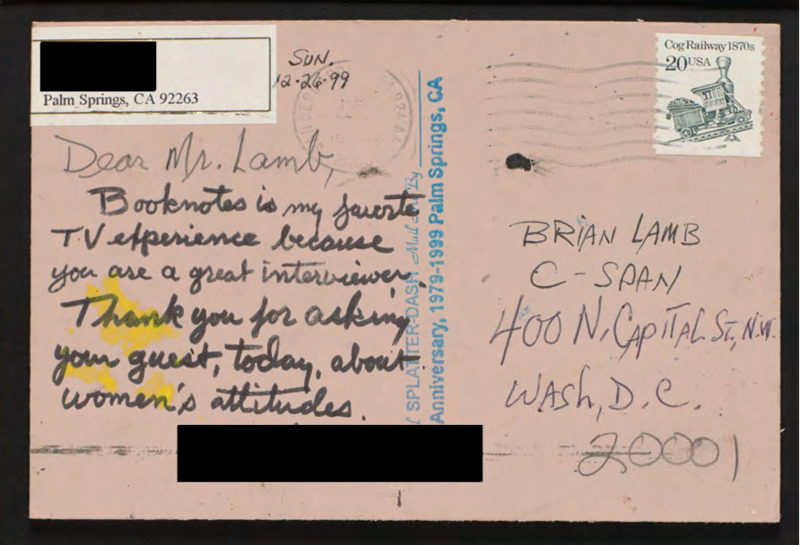 Palm Springs, CA 92263
SUN.
12-26-99
Dear Mr. Lamb,
Booknotes is my favorite
TV experience because
you are a great interviewer.
Thank you for asking
your guest, today, about
women's attitudes.
SPLATTER-DASH Mail By
Anniversary, 1979-1999 Palm Springs, CA
Cog Railway 1870s
20 USA
BRIAN LAMB
C-SPAN
400 N. CAPITAL St, N.W.
WASH, D.C.
20001